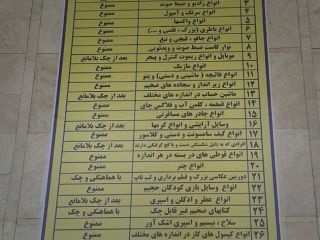 ۳ انواع رادیو و ضبط صوت ممنوع
۴ انواع سرنگ و آمپول ممنوع
۵ انواع واکسها ممنوع
۶ انواع باطری (بزرگ ، قلمی و ....) ممنوع
۷ انواع چاقو ، قیچی و تیغ ممنوع
۸ نوار کاست ضبط صوت و ویدئویی ممنوع
۹ موبایل و انواع ریموت کنترل و پیجر بعد از چک بلامانع
۱۰ انواع ماژیک ممنوع
۱۱ انواع قالیچه (ماشینی و دستی) و پتو ممنوع
۱۲ انواع زیر انداز و سجاده های ضخیم ممنوع
۱۳ ماشین حساب در اندازه های مختلف بعد از چک بلامانع
۱۴ انواع قمقمه ، کلمن آب و فلاکس چای ممنوع
۱۵ انواع چادر های مسافرتی ممنوع
۱۶ وسایل آرایشی و انواع کرمها ممنوع
۱۷ انواع کیف سامسونت و دستی و کلاسور ممنوع
۱۸ افرادی که به دلیل شکستگی دست و پا گچ گرفتگی دارند بعد از چک بلامانع
۱۹ انواع قوطی های در بسته در هر اندازه ممنوع
۲۰ انواع چتر ممنوع
۲۱ دوربین عکاسی بزرگ و فیلم برداری و لب تاپ با هماهنگی و چک
۲۲ انواع وسایل بازی کودکان حجیم ممنوع
۲۳ انواع عطر و ادکلن و اسپری بعد از چک بلامانع
۲۴ کتابهای ضخیم غیر قابل چک با هماهنگی و چک
۲۵ سلاح ، بیسیم و اسپری اشک آور ممنوع
۲۶ انواع کپسول های گاز در اندازه های مختلف ممنوع